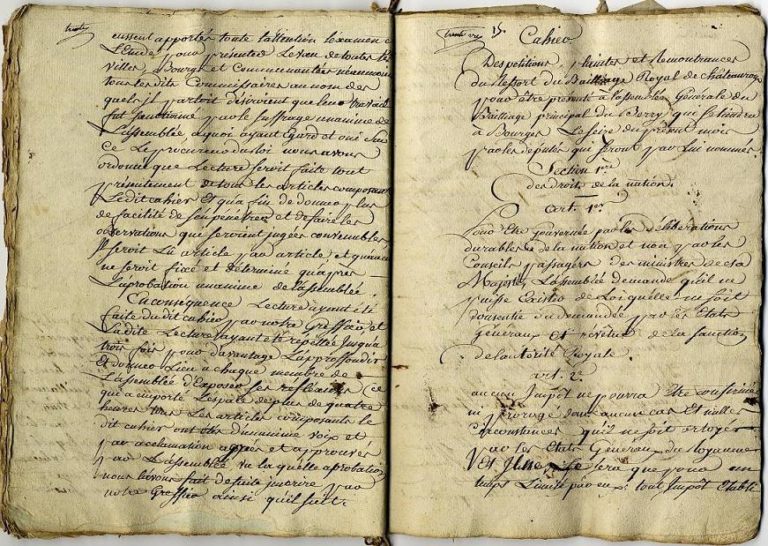 trente
eussent apportés toute l'attention l'examen et
l'Etude pour présenter le vœu de toutes les
villes, Bourgs et Communautés néanmoins
tous lesdits Commissaires au nom des
quels il parloit désiroient que leur travail
fut sanctionné par le suffrage unanime de
l'assemblée, a quoi ayant égard et oui sur
ce Le procureur du Roi nous avons
ordonné que Lecture seroit faite tout
présentement de tous les articles composant
Ledit cahier et qu'a fin de donner plus
de facilité de s'en pénétrer et de faire les
observations que seroient jugées convenables,
Il seroit lu article par article et qu'aucun
ne seroit fixé et déterminé qu'après
L'aprobation unanime de l'assemblée.
En conséquence Lecture ayant été
faite dudit cahier par notre Greffier, et
Ladite Lecture ayant été répettée jusqu'a
trois fois pour davantage L'approffondir
et donner Lieu a chaque membre de
L'assemblée d'Exposer ses reflexions ce
qui a emporté L'espace de plus de quatre
heures tous Les articles composants le
dit cahier ont été d'unanime voix et
par acclamation agréés et approuvés
par L'assemblée de laquelle aprobation
nous L'avons fait de suite inscrire par
notre Greffier ainsi qu'il suit.
trente un 15.
Cahier
Des petitions, plaintes et remontrances
du Ressort du Bailliage Royal de châteauroux
pour être présenté à l'assemblée Générale du
Bailliage principal du Berry qui se tiendra
à Bourges Le seize du présent mois
par les députés qui seront par lui nommés
Section 1ere
des droits de la nation.
art. 1er
Pour Etre gouverné par les délibérations
durables de la nation et non par les
Conseils passagers des ministres de sa
Majesté, L'assemblée demande qu'il ne
puisse Exister de Loi qu'elle ne soit
consentie ou demandée par les Etats
généraux et revêtue de la sanction
de l'autorité Royale.
art. 2e
aucun Impôt ne pourra être consenti
ni prorogé dans aucun cas et nulles
circonstances qu'il ne soit octroyé
par les Etats Généraux du Royaume
Et Il ne Le sera que pour un
temps Limité passé tout Impôt Etabli